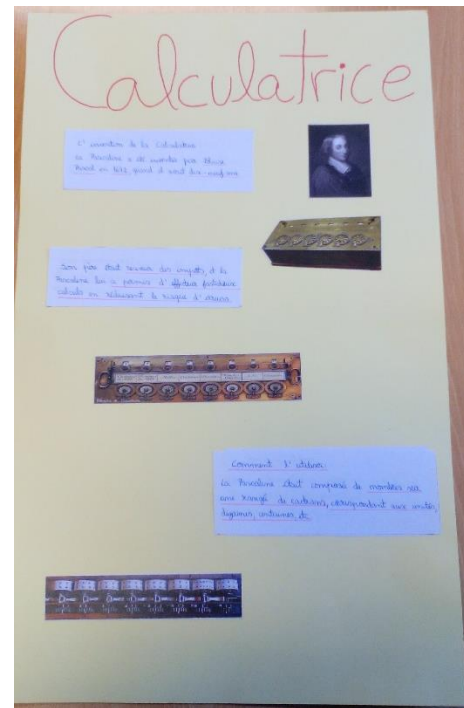 Calculatrice
L'invention de la Calculatrice
La Pascaline a été inventée par Blaise
Pascal en 1642, quand il avait dix-neuf ans.
Son père était receveur des impôts, et la
Pascaline lui a permis d'effectuer
calculs en réduisant le risque d'erreurs.
Comment l'utiliser:
La Pascaline était composé de
une rangé de cadrans, correspondant aux unités,
dizaines, centaines, etc